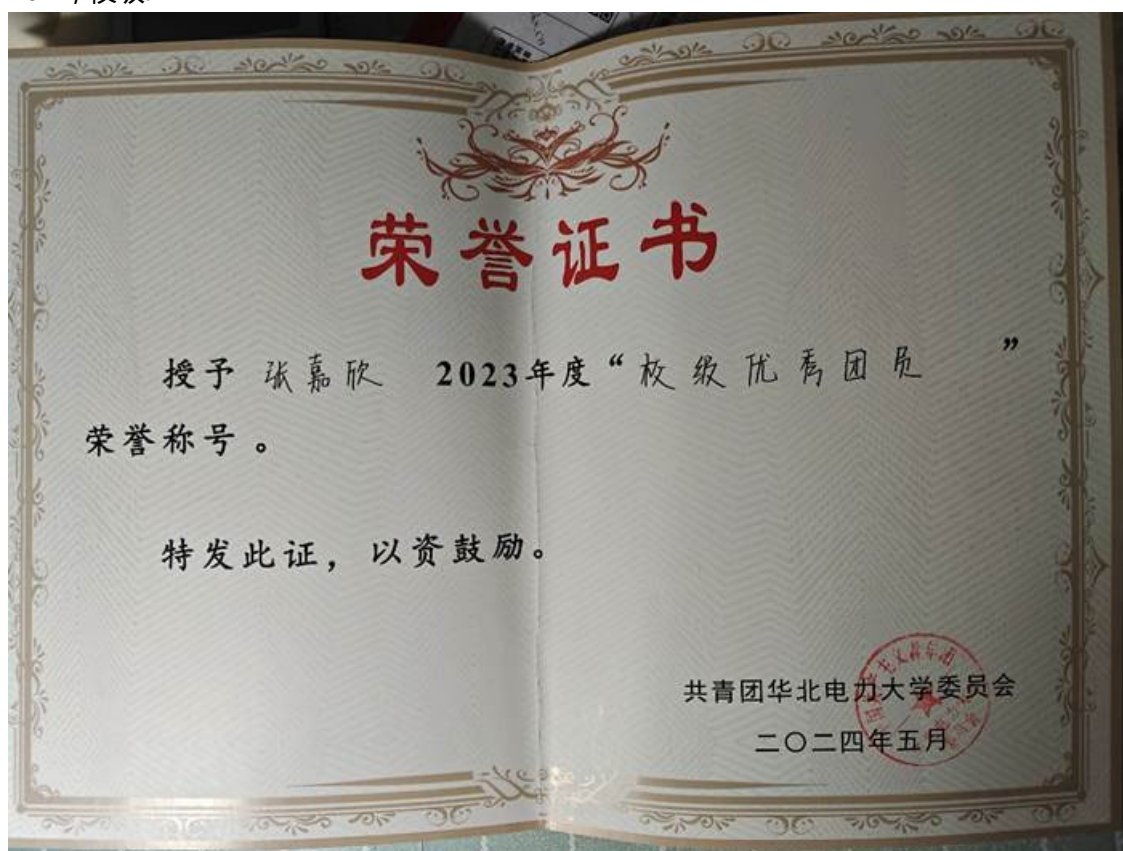 荣誉证书
授予 张嘉欣 2023年度“校级优秀团员”
荣誉称号。
特发此证，以资鼓励。
共青团华北电力大学委员会
二〇二四年五月